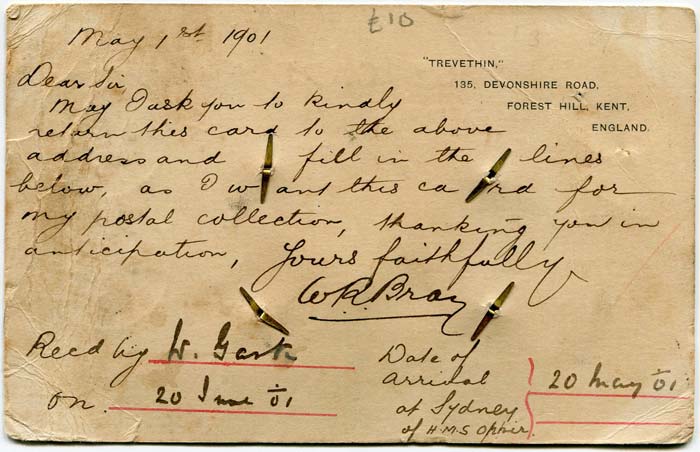 May 1st 1901
£10
"TREVETHIN,"
135, DEVONSHIRE ROAD,
FOREST HILL, KENT,
ENGLAND.
Dear Sir
May I ask you to kindly
return this card to the above
address and fill in the lines
below, as I want this card for
my postal collection, thanking you in
anticipation, Yours faithfully
W.R. Bray
Recd by W.
on. 20 June 01
Date of
arrival
at Sydney
of H.M.S Ophir.
20 May 01